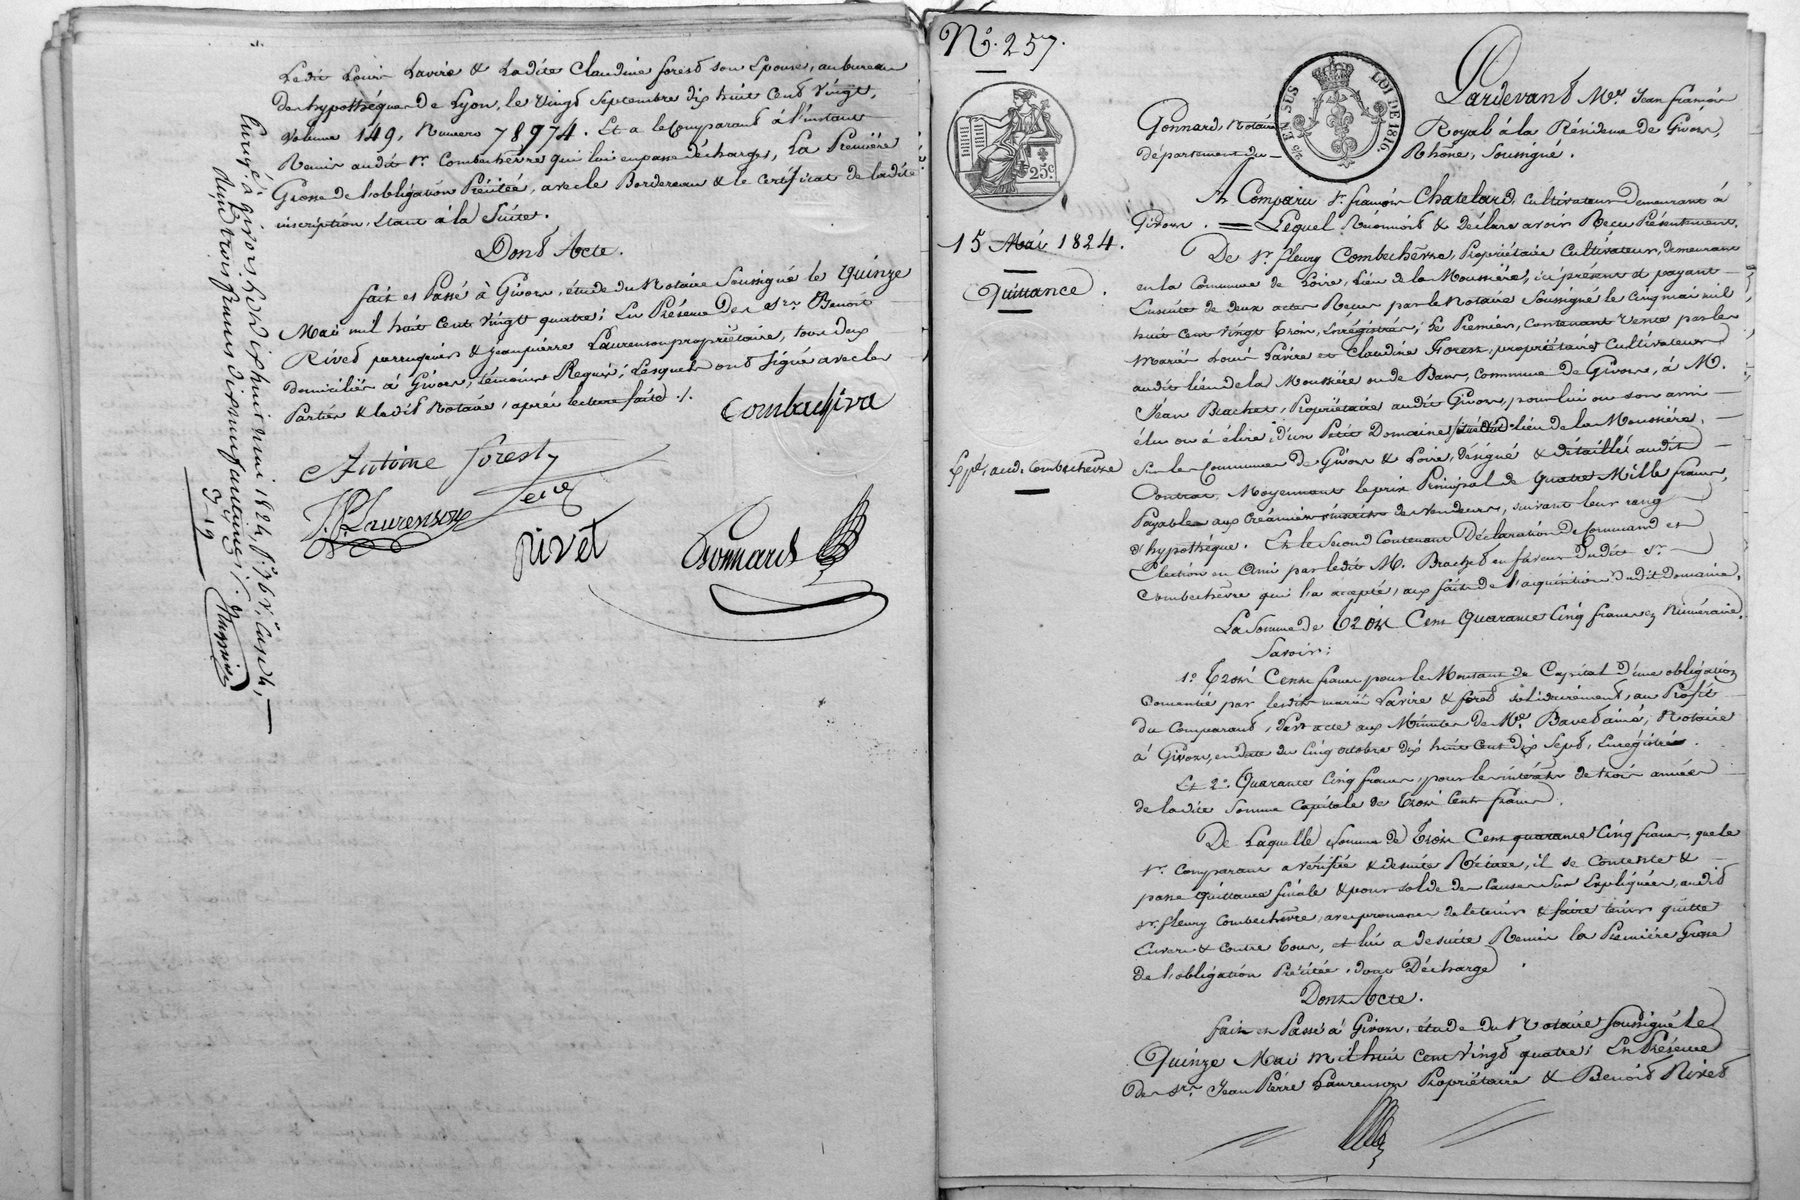 Ledit Louis Lavire & Ladite Claudine forest son Epouse, au bureau
des hypothéques de Lyon, le vingt Septembre dix huit Cent Vingt,
volume 149, Numero 78974. Et a le Comparant à l'instant
Remis audit Sr. Combechèvre qui lui en passe décharge, La Première
Grosse de l'obligation Précitée, avec le Bordereau & le certificat de ladite
inscription, étant à la Suite.
Dont Acte.
fait et Passé à Givors, étude du Notaire Soussigné le Quinze
Mai mil huit Cent vingt quatre; En Présence Des Srs. Benoit
Rivet perruquier & Jean pierre Laurenson propriétaire, tous deux
domiciliés à Givors, témoins Requis; Lesquels ont Signé avec les
Parties & ledit Notaire, après lecture faite ./.
Combechiva
Antoine forest
J. P. Laurenson
Rivet
Gonnard
Enregé à Givors le dix huit mai 1824, fo.
deux trois francs dix neuf centimes
3-19
No. 257.
EN SUS
LOI DE 1816
25c
Pardevant Me. Jean françois
Gonnard, Notaire Royal à la Résidence de Givors,
département du Rhône, Soussigné.
A Comparu Sr. françois Chatelard, Cultivateur demeurant à
Givors. = Lequel Reconnoit & déclare avoir Recu Présentement.
15 Mai 1824.
De Sr. fleury Combechèvre, Propriétaire Cultivateur, demeurant
en la Commune de Loire, Lieu de la Moussière, ici présent & payant
Quittance.
Ensuite de deux actes Reçus par le Notaire Soussigné le cinq mai mil
huit Cent vingt trois, Enrégistrés; Le Premier, contenant vente par les
mariés Louis Lavire et Claudine Forest, propriétaires Cultivateurs
audit lieu de la Moussière ou de Bans, commune de Givors, à M.
Jean Brachet, Propriétaire audit Givors, pour lui ou son ami
élu ou à élire, d'un Petit Domaine situé dit lieu de la Moussière,
Expé. aud. Combechèvre
Sur les Communes de Givors & Loire, désigné & détaillé audit
Contrat, Moyennant le prix Principal de Quatre Mille francs,
Payables aux Créanciers inscrits des vendeurs, suivant leur rang
d'hypothèque. Et le Second Contenant Déclaration de Command et
Election en Ami par ledit M. Brachet en faveur dudit Sr.
Combechèvre qui l'a accepté, aux faits de l'acquisition dudit domaine,
La Somme de Trois Cent Quarante Cinq francs en Numéraire,
Savoir:
1o. Trois Cents francs pour le Montant du Capital d'une obligation
Consentie par lesdits mariés Lavire & forest solidairement, au Profit
du Comparant, Par acte aux Minutes de Me. Bavet ainé, Notaire
à Givors, en date du Cinq octobre dix huit Cent dix Sept, Enregistré.
Et 2o. Quarante Cinq francs, pour les intérêts de trois années
de ladite Somme Capitale de Trois Cents francs.
De Laquelle Somme de Trois Cent quarante Cinq francs, que le
Sr. Comparant a vérifiée & de suite Retirée, il se Contente &
passe quittance finale & pour solde des Causes Sus Expliquées, audit
Sr. fleury Combechèvre, avec promesse de le tenir & faire tenir quitte
Envers & Contre tous, et lui a de suite Remis la Première Grosse
de l'obligation Précitée, dont Décharge.
Dont Acte.
fait et Passé à Givors, étude du Notaire Soussigné Le
Quinze Mai mil huit cent vingt quatre; En Présence
des Srs. Jean Pierre Laurenson Propriétaire & Benoit Rivet